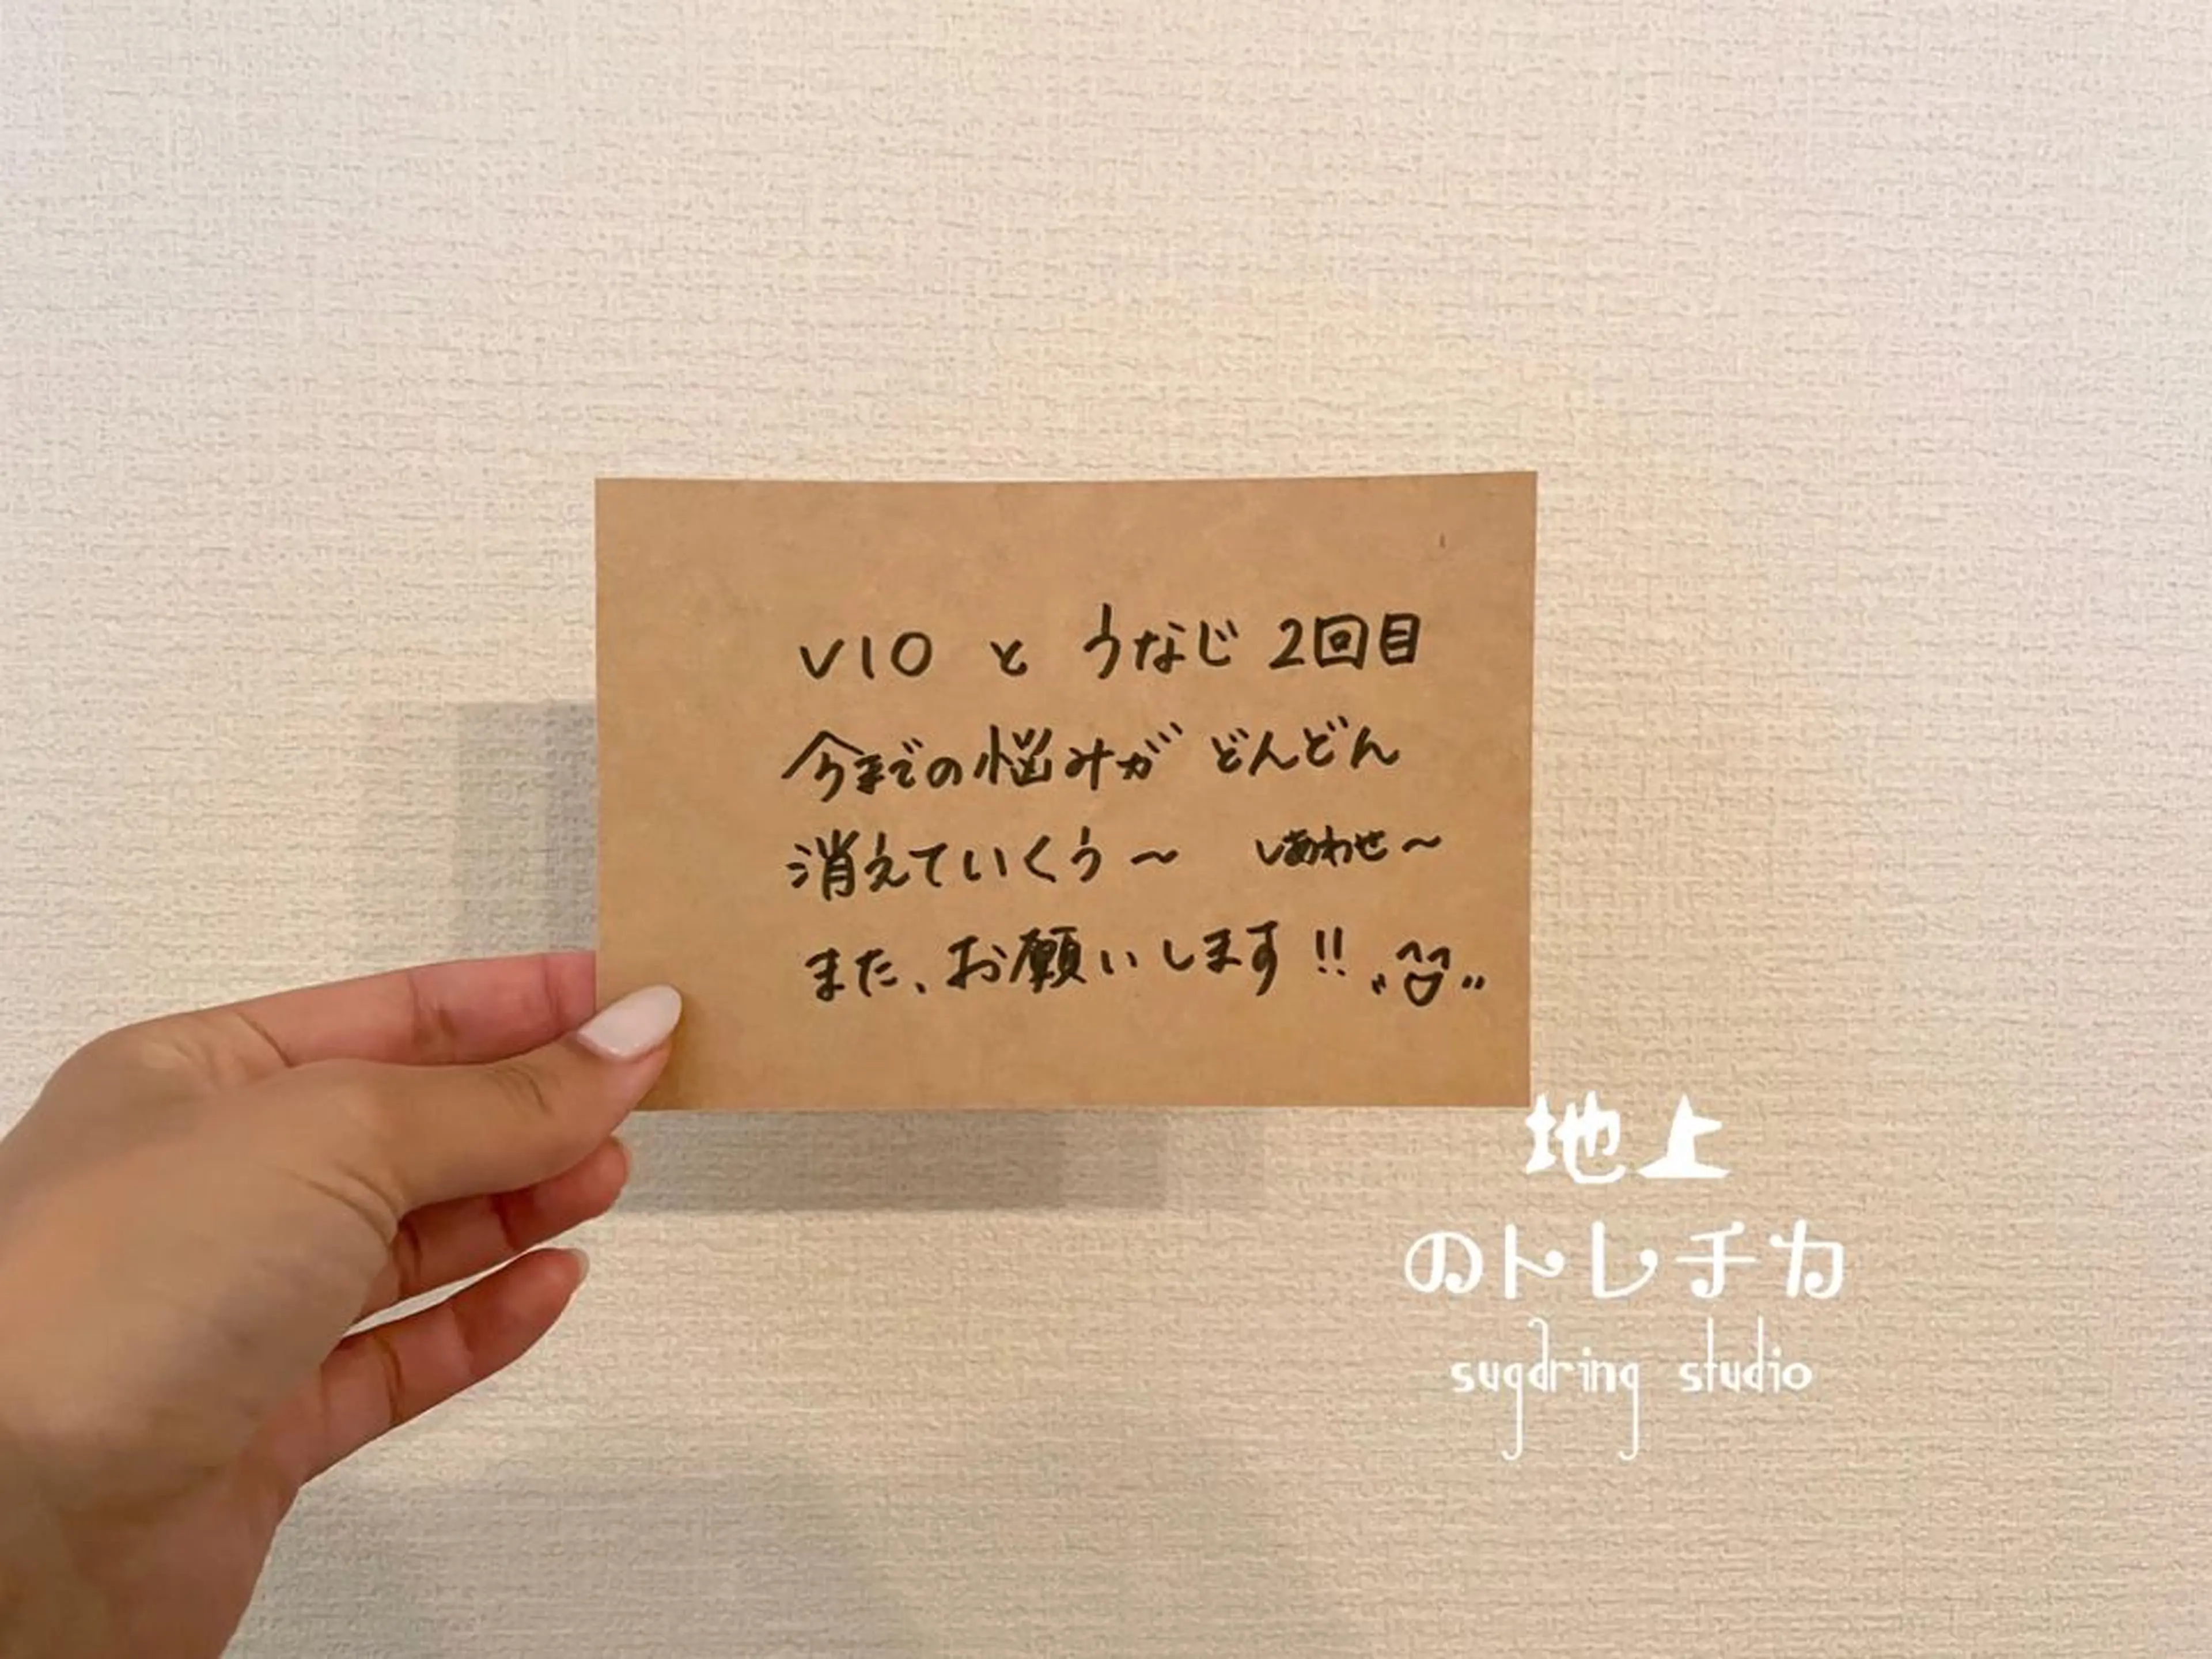 VIO と うなじ 2回目
今までの悩みが どんどん
消えていくぅ〜 しあわせ〜
また、お願いします!!
地上
のトレチカ
sugdring studio